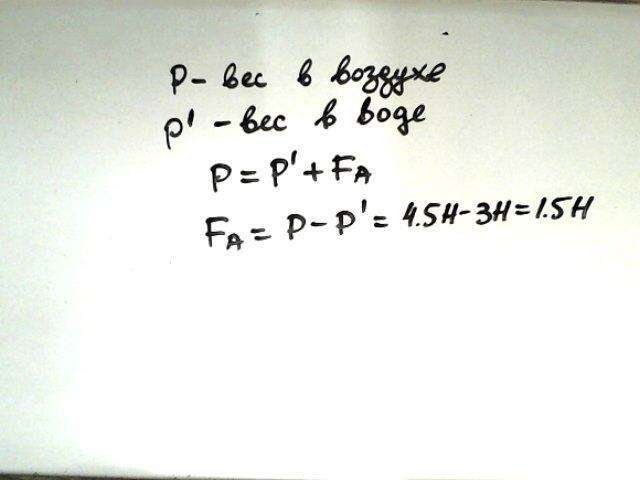 P- вес в воздухе
P' - вес в воде
P = P' + FA
FA = P - P' = 4.5Н - 3Н = 1.5Н